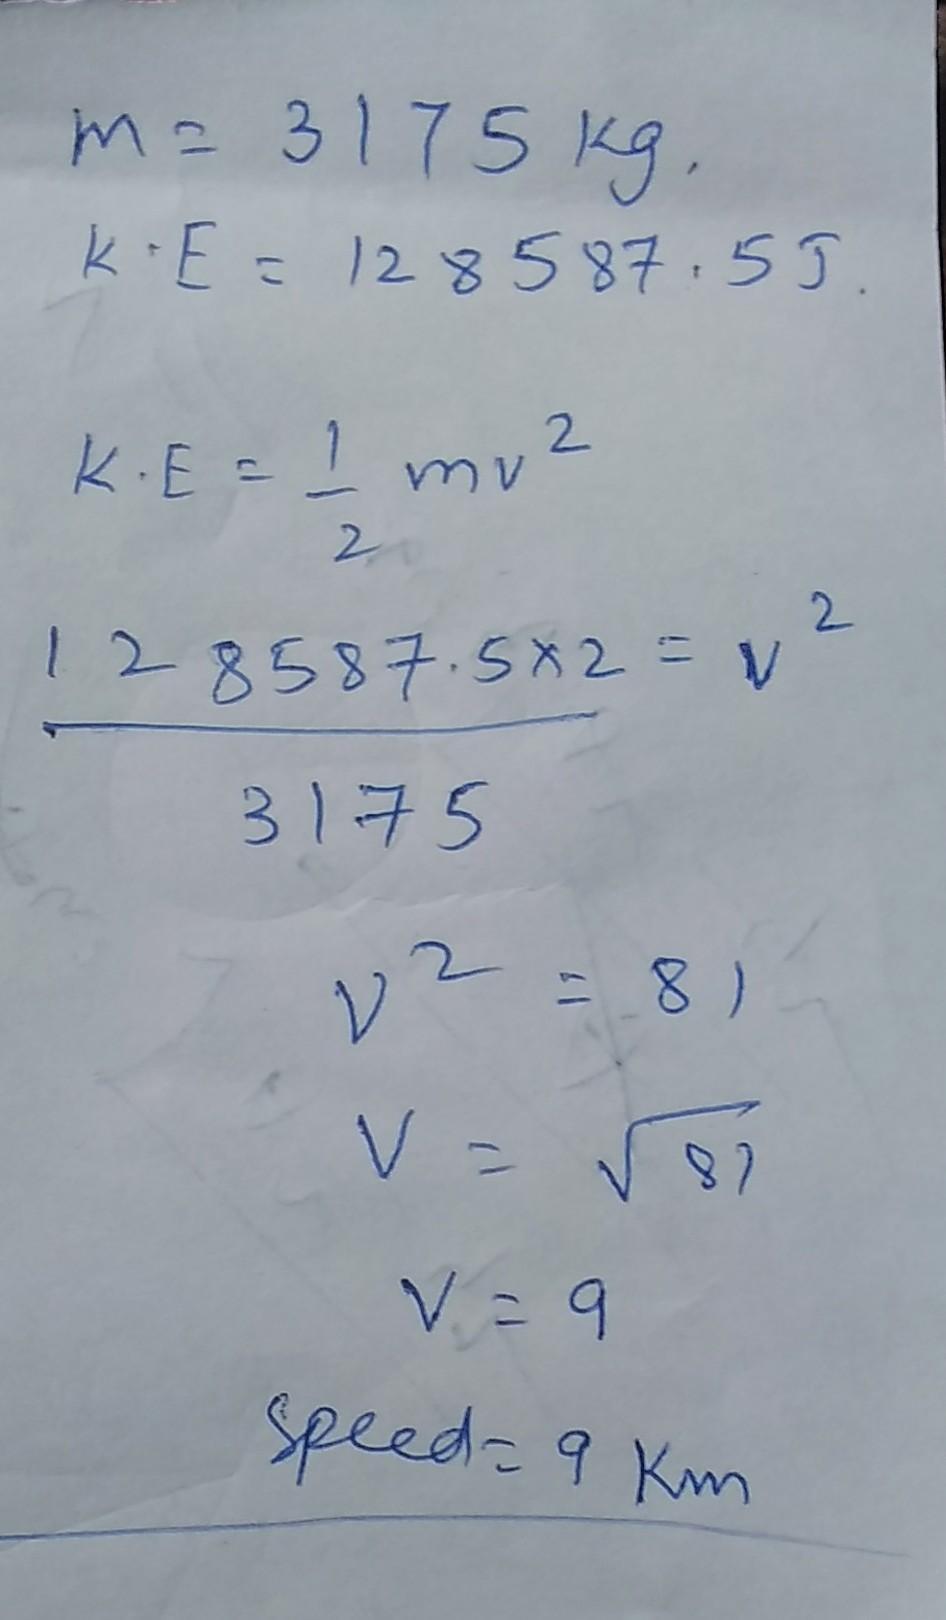 m = 3175 kg.
K.E = 128587.5 J.
K.E = 1/2 mv²
128587.5×2 = v²
3175
v² = 81
V = √81
V = 9
Speed = 9 Km